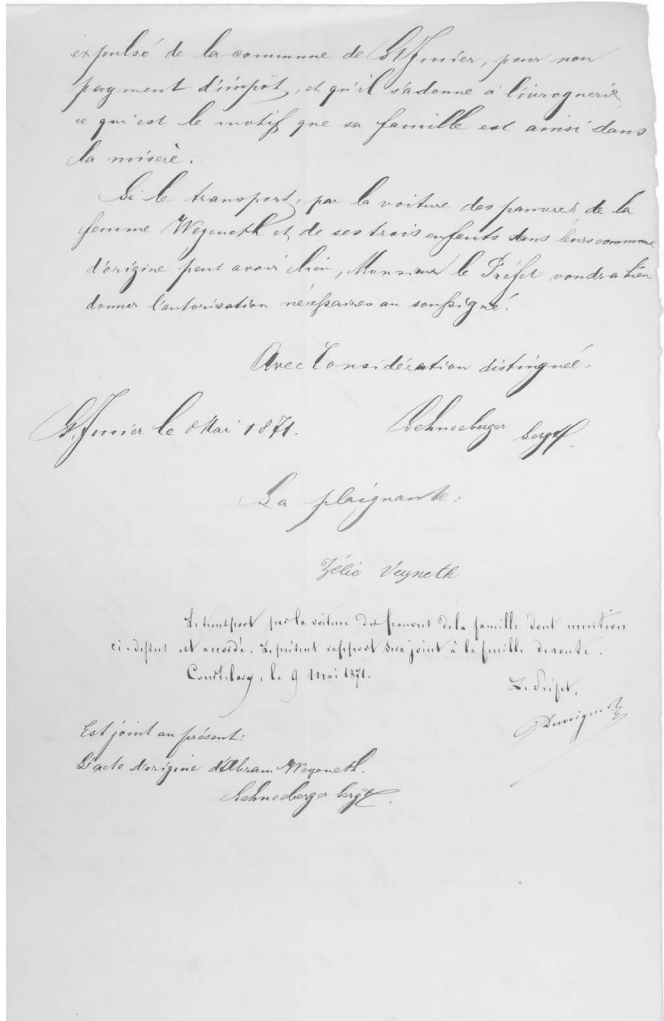 expulsé de la commune de St. Imier, pour non
payment d'impôt, et qu'il s'adonne à l'ivrognerie
ce qu'est le motif que sa famille est ainsi dans
la miserè.
Si le transport, par la voiture des pauvres de la
femme Wegeneth et de ses trois enfants dans leurs commune
d'origine peut avoir lieu, Monsieur le Préfet voudra bien
donner l'autorisation nécessaires au soussigné.
Avec Considération distinguée.
St. Imier le 8 Mai 1871.
Schneeberger Sergt.
La plaignante:
Zélie Veyneth
Le transport par la voiture des pauvres de la famille dont mention
ci-dessus est accordé. Le présent rapport sera joint à la feuille de route.
Courtelary, le 9 Mai 1871.
Le Préfet,
Est joint au présent:
L'acte d'origine d'Abram Wegeneth.
Schneeberger Sergt.